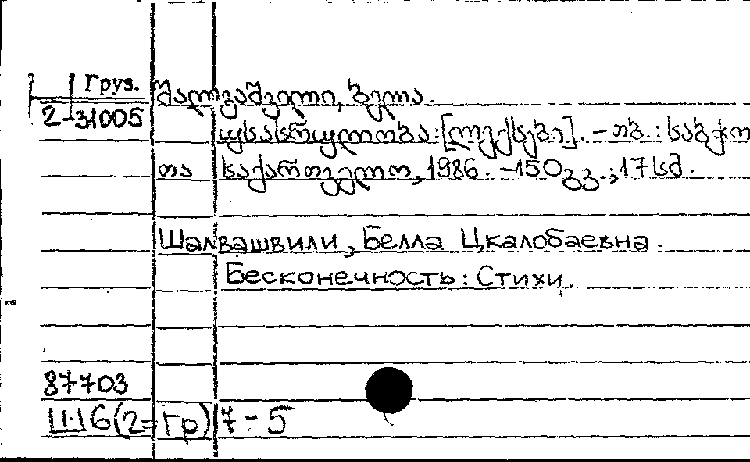 Груз.
2-31005
შალვაშვილი, ბელა.
უსასრულობა: [ლექსები]. – თბ.: საბჭო
თა საქართველო, 1986. – 150გვ.; 17სმ.
Шалвашвили, Белла Цкалобаевна.
Бесконечность: Стихи.
87703
Ш6(2=Гр)7-5